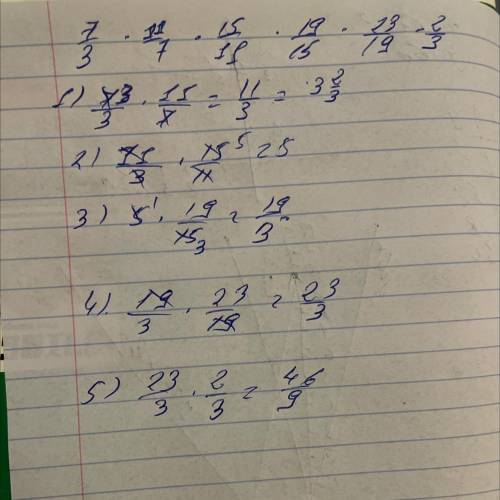 7/3 · 11/7 · 15/11 · 19/15 · 23/19 · 2/3
1) 73/3 · 11/7 = 11/3 = 3 2/3
2) 11/3 · 15/11 5 = 5
3) 5 1 · 19/15 3 = 19/3
4) 19/3 · 23/19 = 23/3
5) 23/3 · 2/3 = 46/9